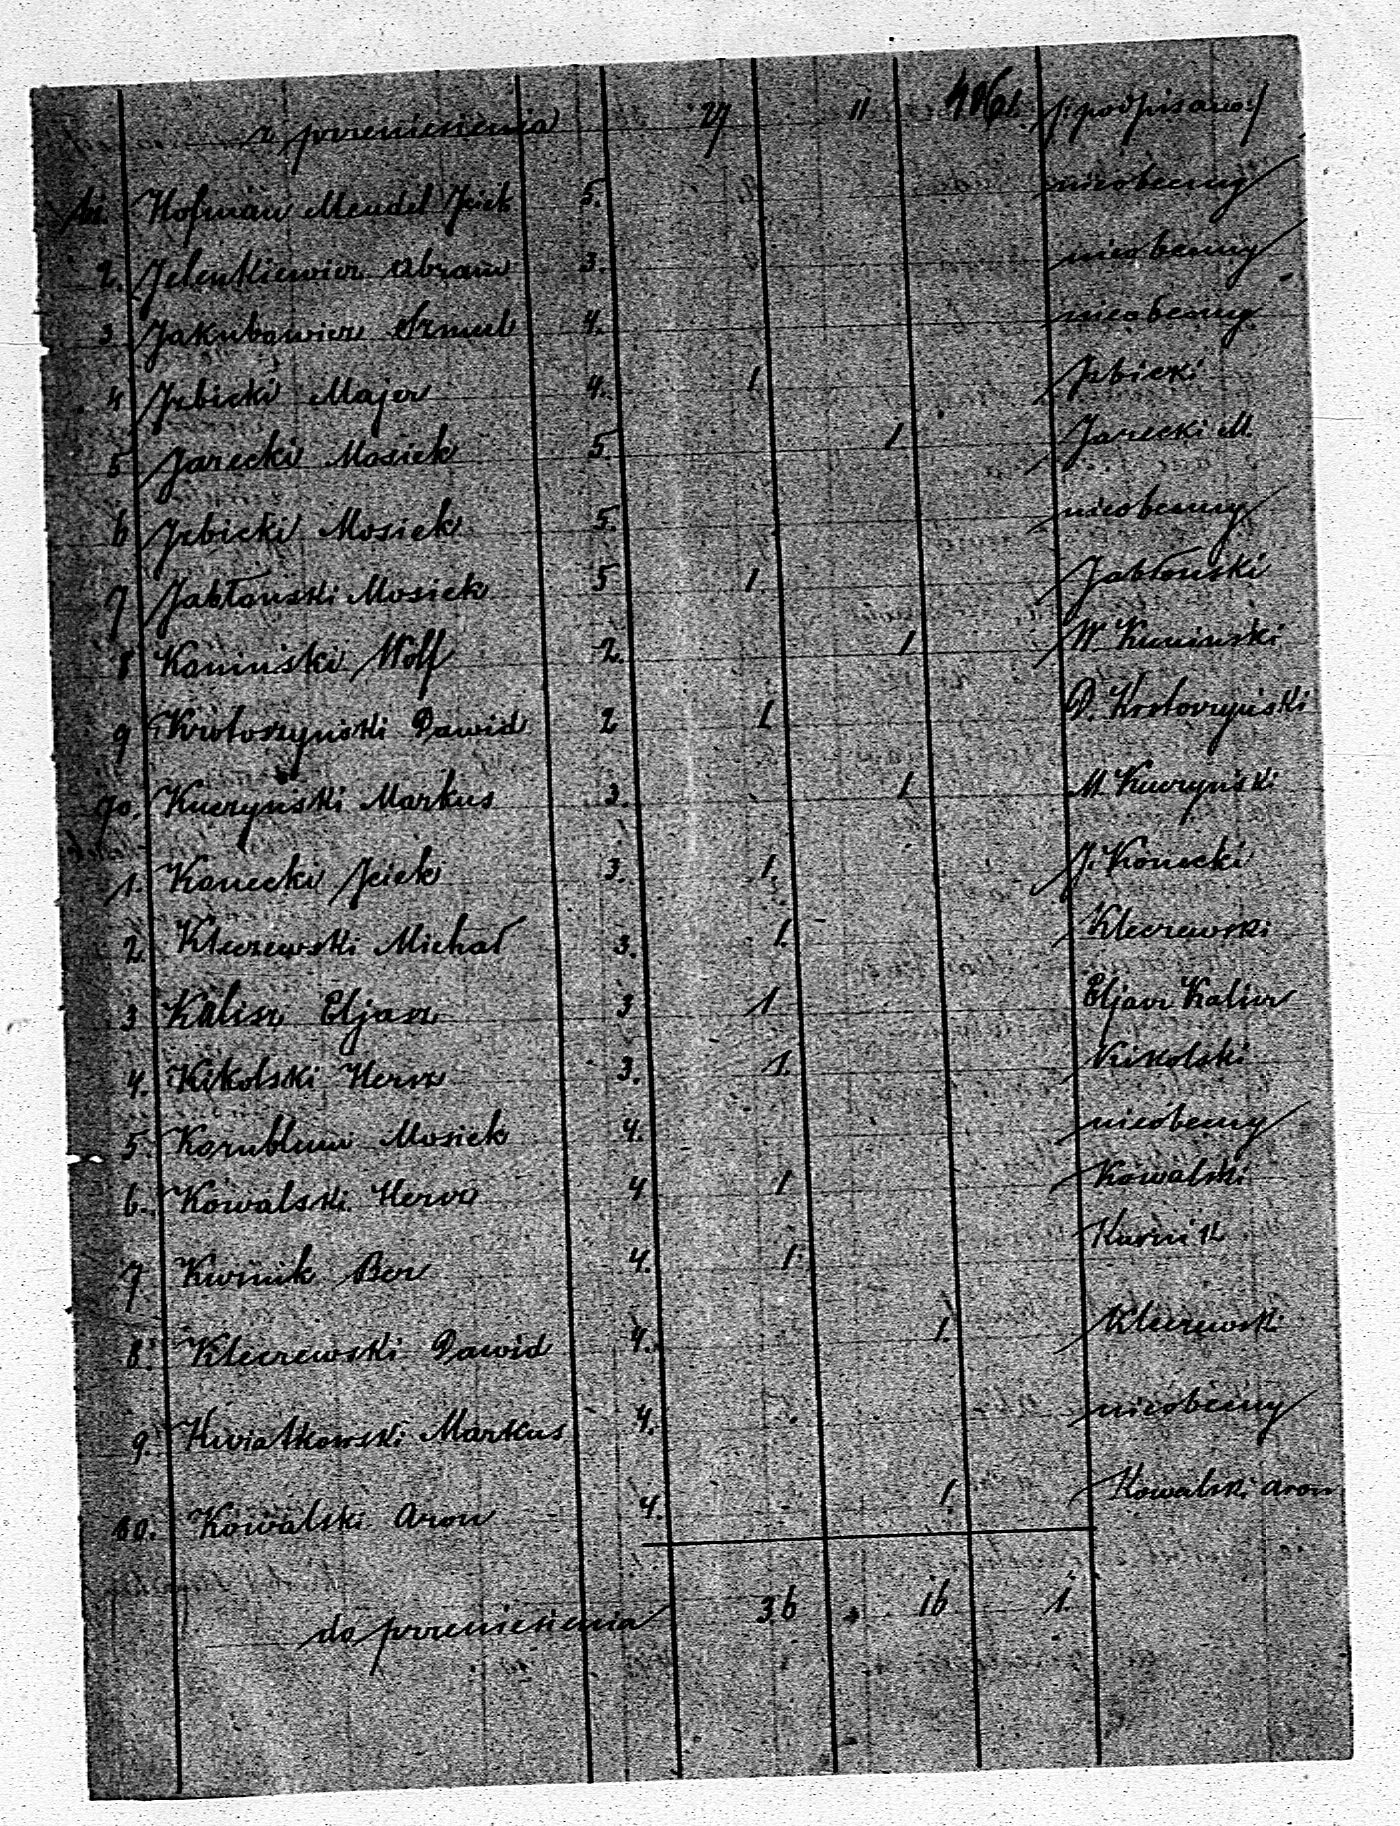 z przeniesienia 27 11 /:podpisano:/
Hofman Mendel Jcek 5. nieobecny
2. Jelenkiewicz Abram 3. nieobecny
3 Jakubowicz Szmul 4. nieobecny
4 Jzbicki Majer 4. 1. Jzbicki
5 Jarecki Mosiek 5. 1. Jarecki M.
6 Jzbicki Mosiek 5. nieobecny
7 Jabłoński Mosiek 5 1. Jabłoński
8 Koninski Wolf 2. 1. W.
9 Krotoszyński Dawid 2 1. D. Krotoszyński
70. Kuczyński Markus 3. 1. M. Kuczyński
1. Konecki Jcek 3. 1. J. Konecki
2 Kleczewski Michał 3. 1. Kleczewski
3 Kalisz Eljasz 3 1. Eljasz Kalisz
4. Kikolski Hersz 3. 1. Kikolski
5. Kornblum Mosiek 4. nieobecny
6. Kowalski Hersz 4 1 Kowalski
7 Kurnik Ber 4. 1. Kurnik
8. Kleczewski Dawid 4. 1. Kleczewski
9. Kwiatkowski Markus 4. nieobecny
80. Kowalski Aron 4. 1. Kowalski Aron
do przeniesienia 36 16 1.